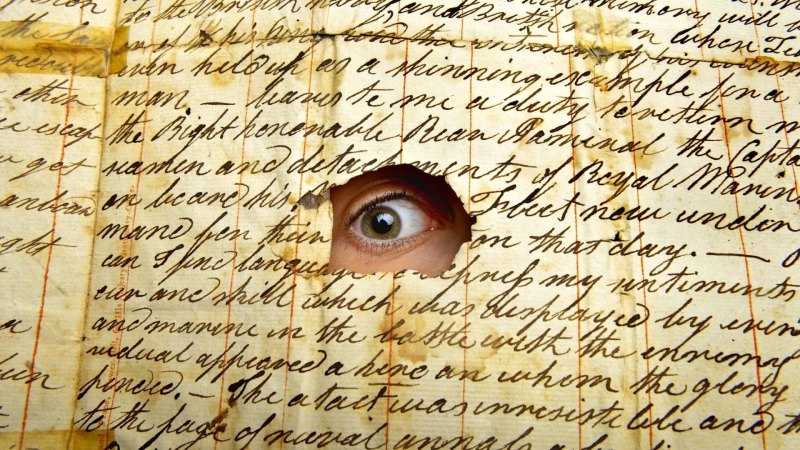 to the British Navy and British
where Te
even held up as a shinning example for a
man. — leaves to me a duty to return m
escap the Right honorable Rear Admiral the Capta
get seamen and detachments of Royal Marin
on board his Fleet now under
ight mand for their on that day. —
can I find language express my sentiments
our and skill which was displayed by even
and marine in the battle with the ennemy
vidual appeared a hero on whom the glory
pended. — The attact was irresistible and th
to the page of naval annals a